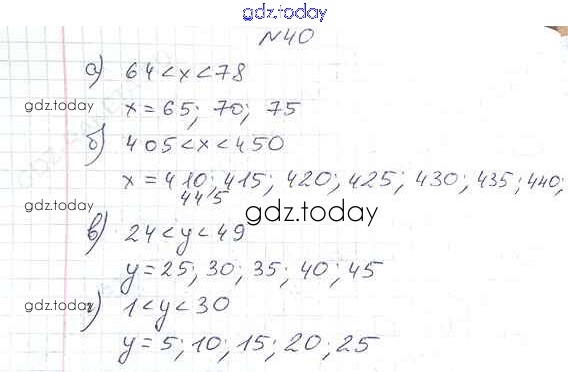 gdz.today
№40
а) 64<x<78
gdz.today
x=65; 70; 75
б) 405<x<450
x=410; 415; 420; 425; 430; 435; 440;
445
gdz.today
gdz.today
в) 24<y<49
y=25; 30; 35; 40; 45
gdz.today
г) 1<y<30
y=5; 10; 15; 20; 25